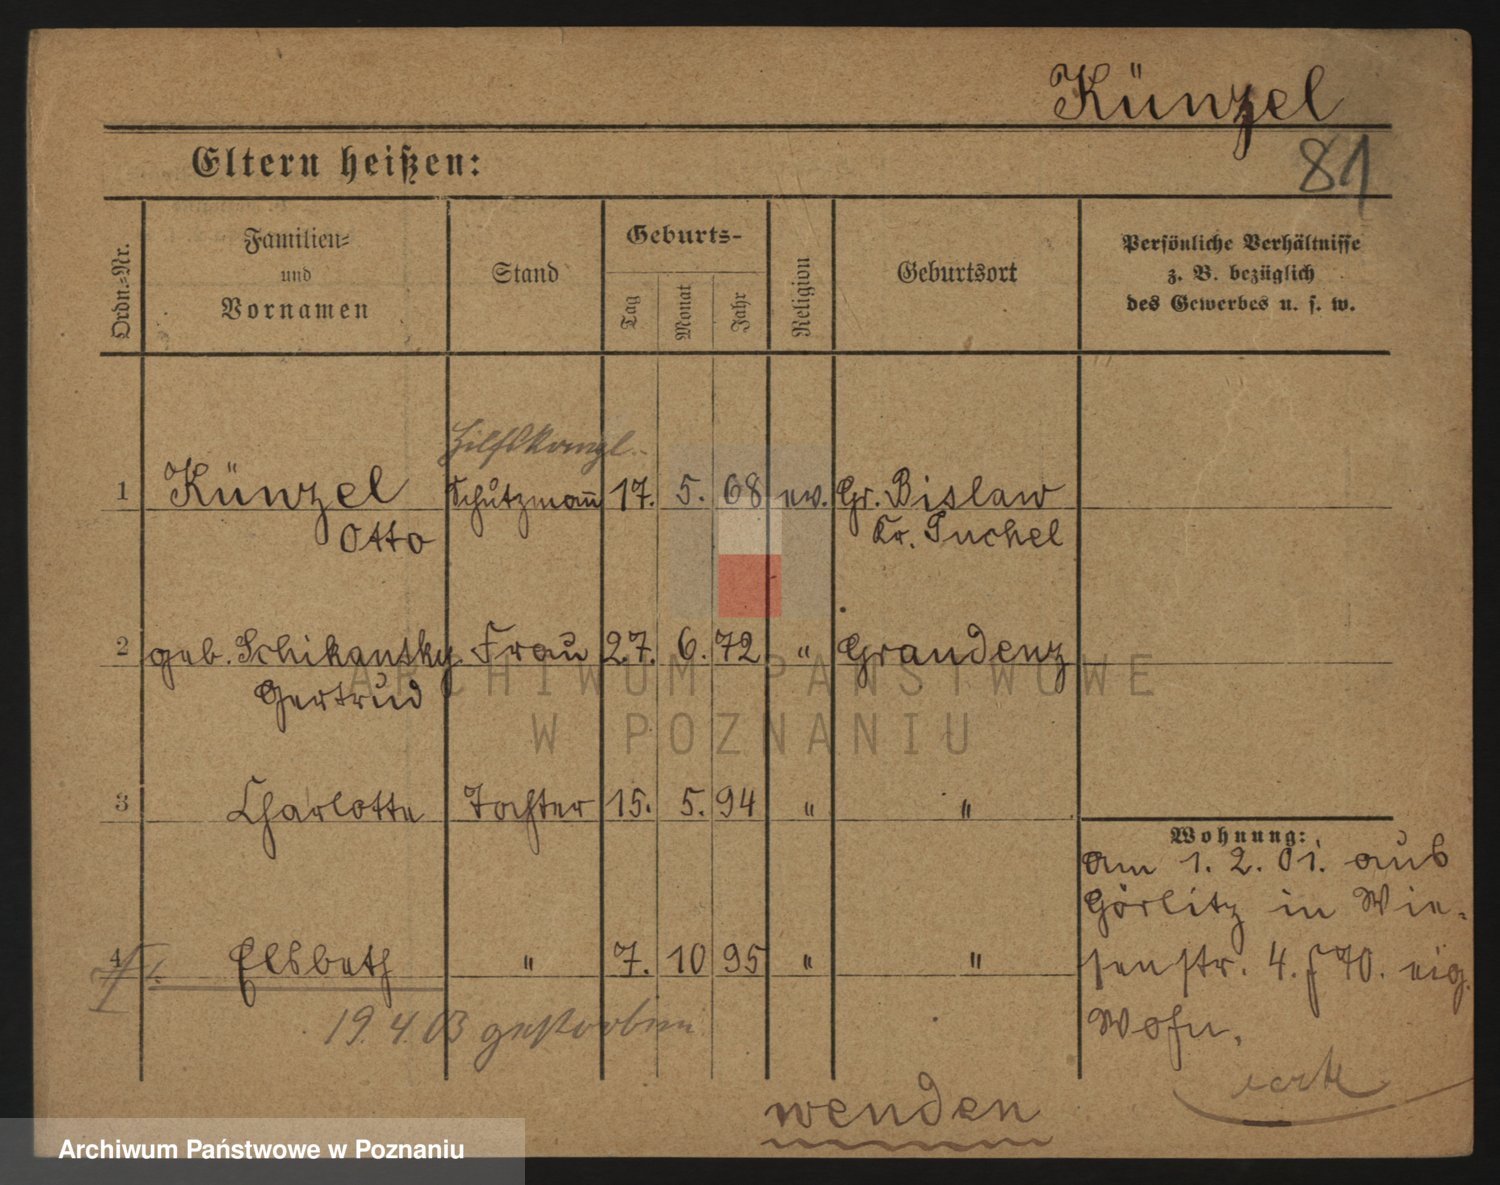 Künzel
Eltern heißen:
81
Ordn.-Nr.
Familien-
und
Vornamen
Stand
Geburts-
Tag
Monat
Jahr
Religion
Geburtsort
Persönliche Verhältnisse
z. B. bezüglich
des Gewerbes u. s. w.
Hilfskanzl.
1 Künzel Schutzmann 17. 5. 68 ev. Gr. Bislaw
Otto Kr. Tuchel
2 geb. Schikansky Frau 27. 6. 72 " Graudenz
Gertrud
3 Charlotte Tochter 15. 5. 94 " "
4 Elsbeth " 7. 10 95 " "
19.4.03 gestorben
Wohnung:
Am 1. 2. 01. aus
Görlitz in Wie-
senstr. 4. 70. eig.
Wohn.
wenden
ARCHIWUM PAŃSTWOWE
W POZNANIU
Archiwum Państwowe w Poznaniu